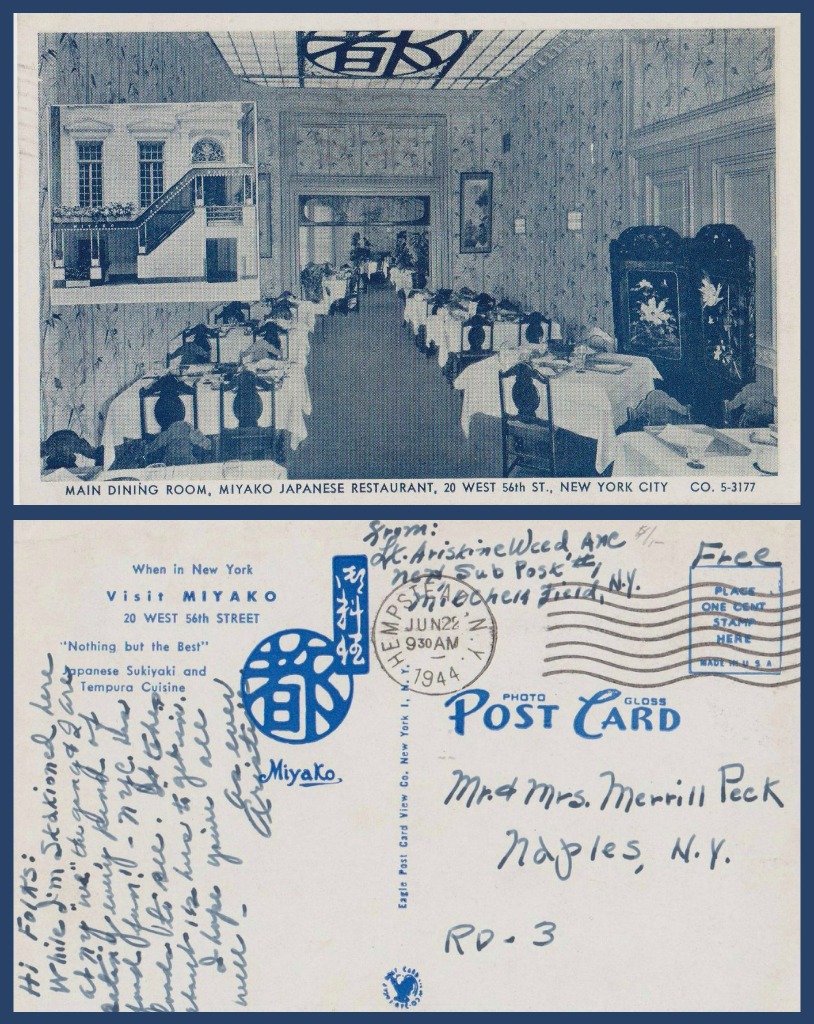 都
MIYAKO
MAIN DINING ROOM, MIYAKO JAPANESE RESTAURANT, 20 WEST 56th ST., NEW YORK CITY CO. 5-3177
When in New York
Visit MIYAKO
20 WEST 56th STREET
"Nothing but the Best"
Japanese Sukiyaki and
Tempura Cuisine
御料理
都
Miyako
From:
Lt. Ariskine Weed, ANC
Sub Post #1
Mitchell Field, N.Y.
Free
HEMPSTEAD, N.Y.
JUN 22
930 AM
1944
PLACE
ONE CENT
STAMP
HERE
MADE IN U.S.A
PHOTO GLOSS
POST CARD
Eagle Post Card View Co. New York 1, N.Y.
Mr. & Mrs. Merrill Peck
Naples, N.Y.
RD-3
Hi Folks:
While I'm stationed here
at my "the gang & I are
every kind of
food fun!! - NYC has
loads to see.
here to
I hope you're all
well -
As ever